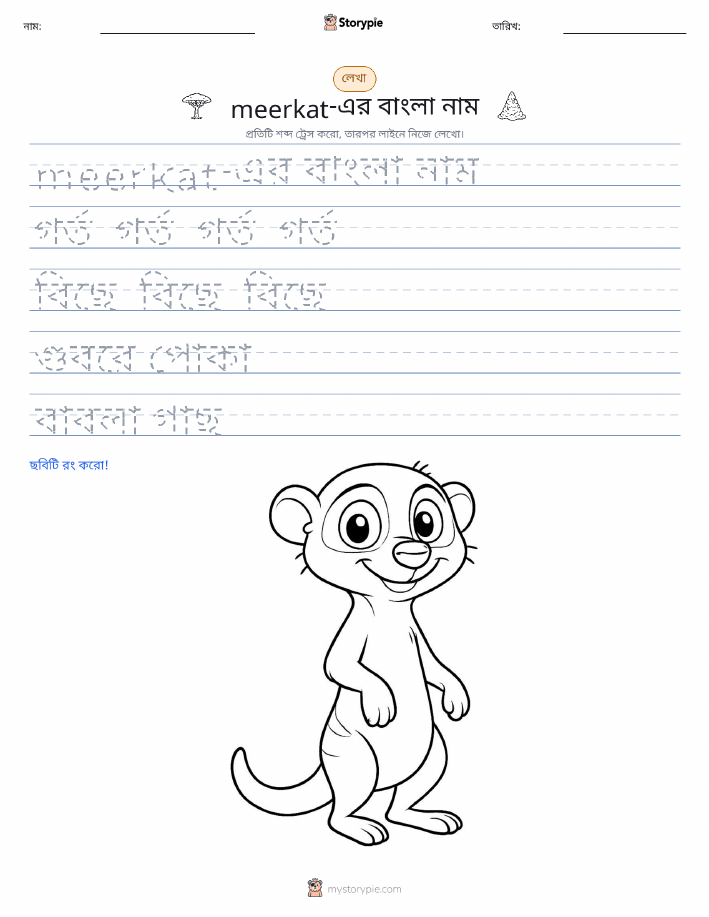 নাম:
Storypie
তারিখ:
লেখা
meerkat-এর বাংলা নাম
প্রতিটি শব্দ ট্রেস করো, তারপর লাইনে নিজে লেখো।
meerkat-এর বাংলা নাম
গর্ত গর্ত গর্ত গর্ত
বিছে বিছে বিছে
গুবরে পোকা
বাবলা গাছ
ছবিটি রং করো!
mystorypie.com